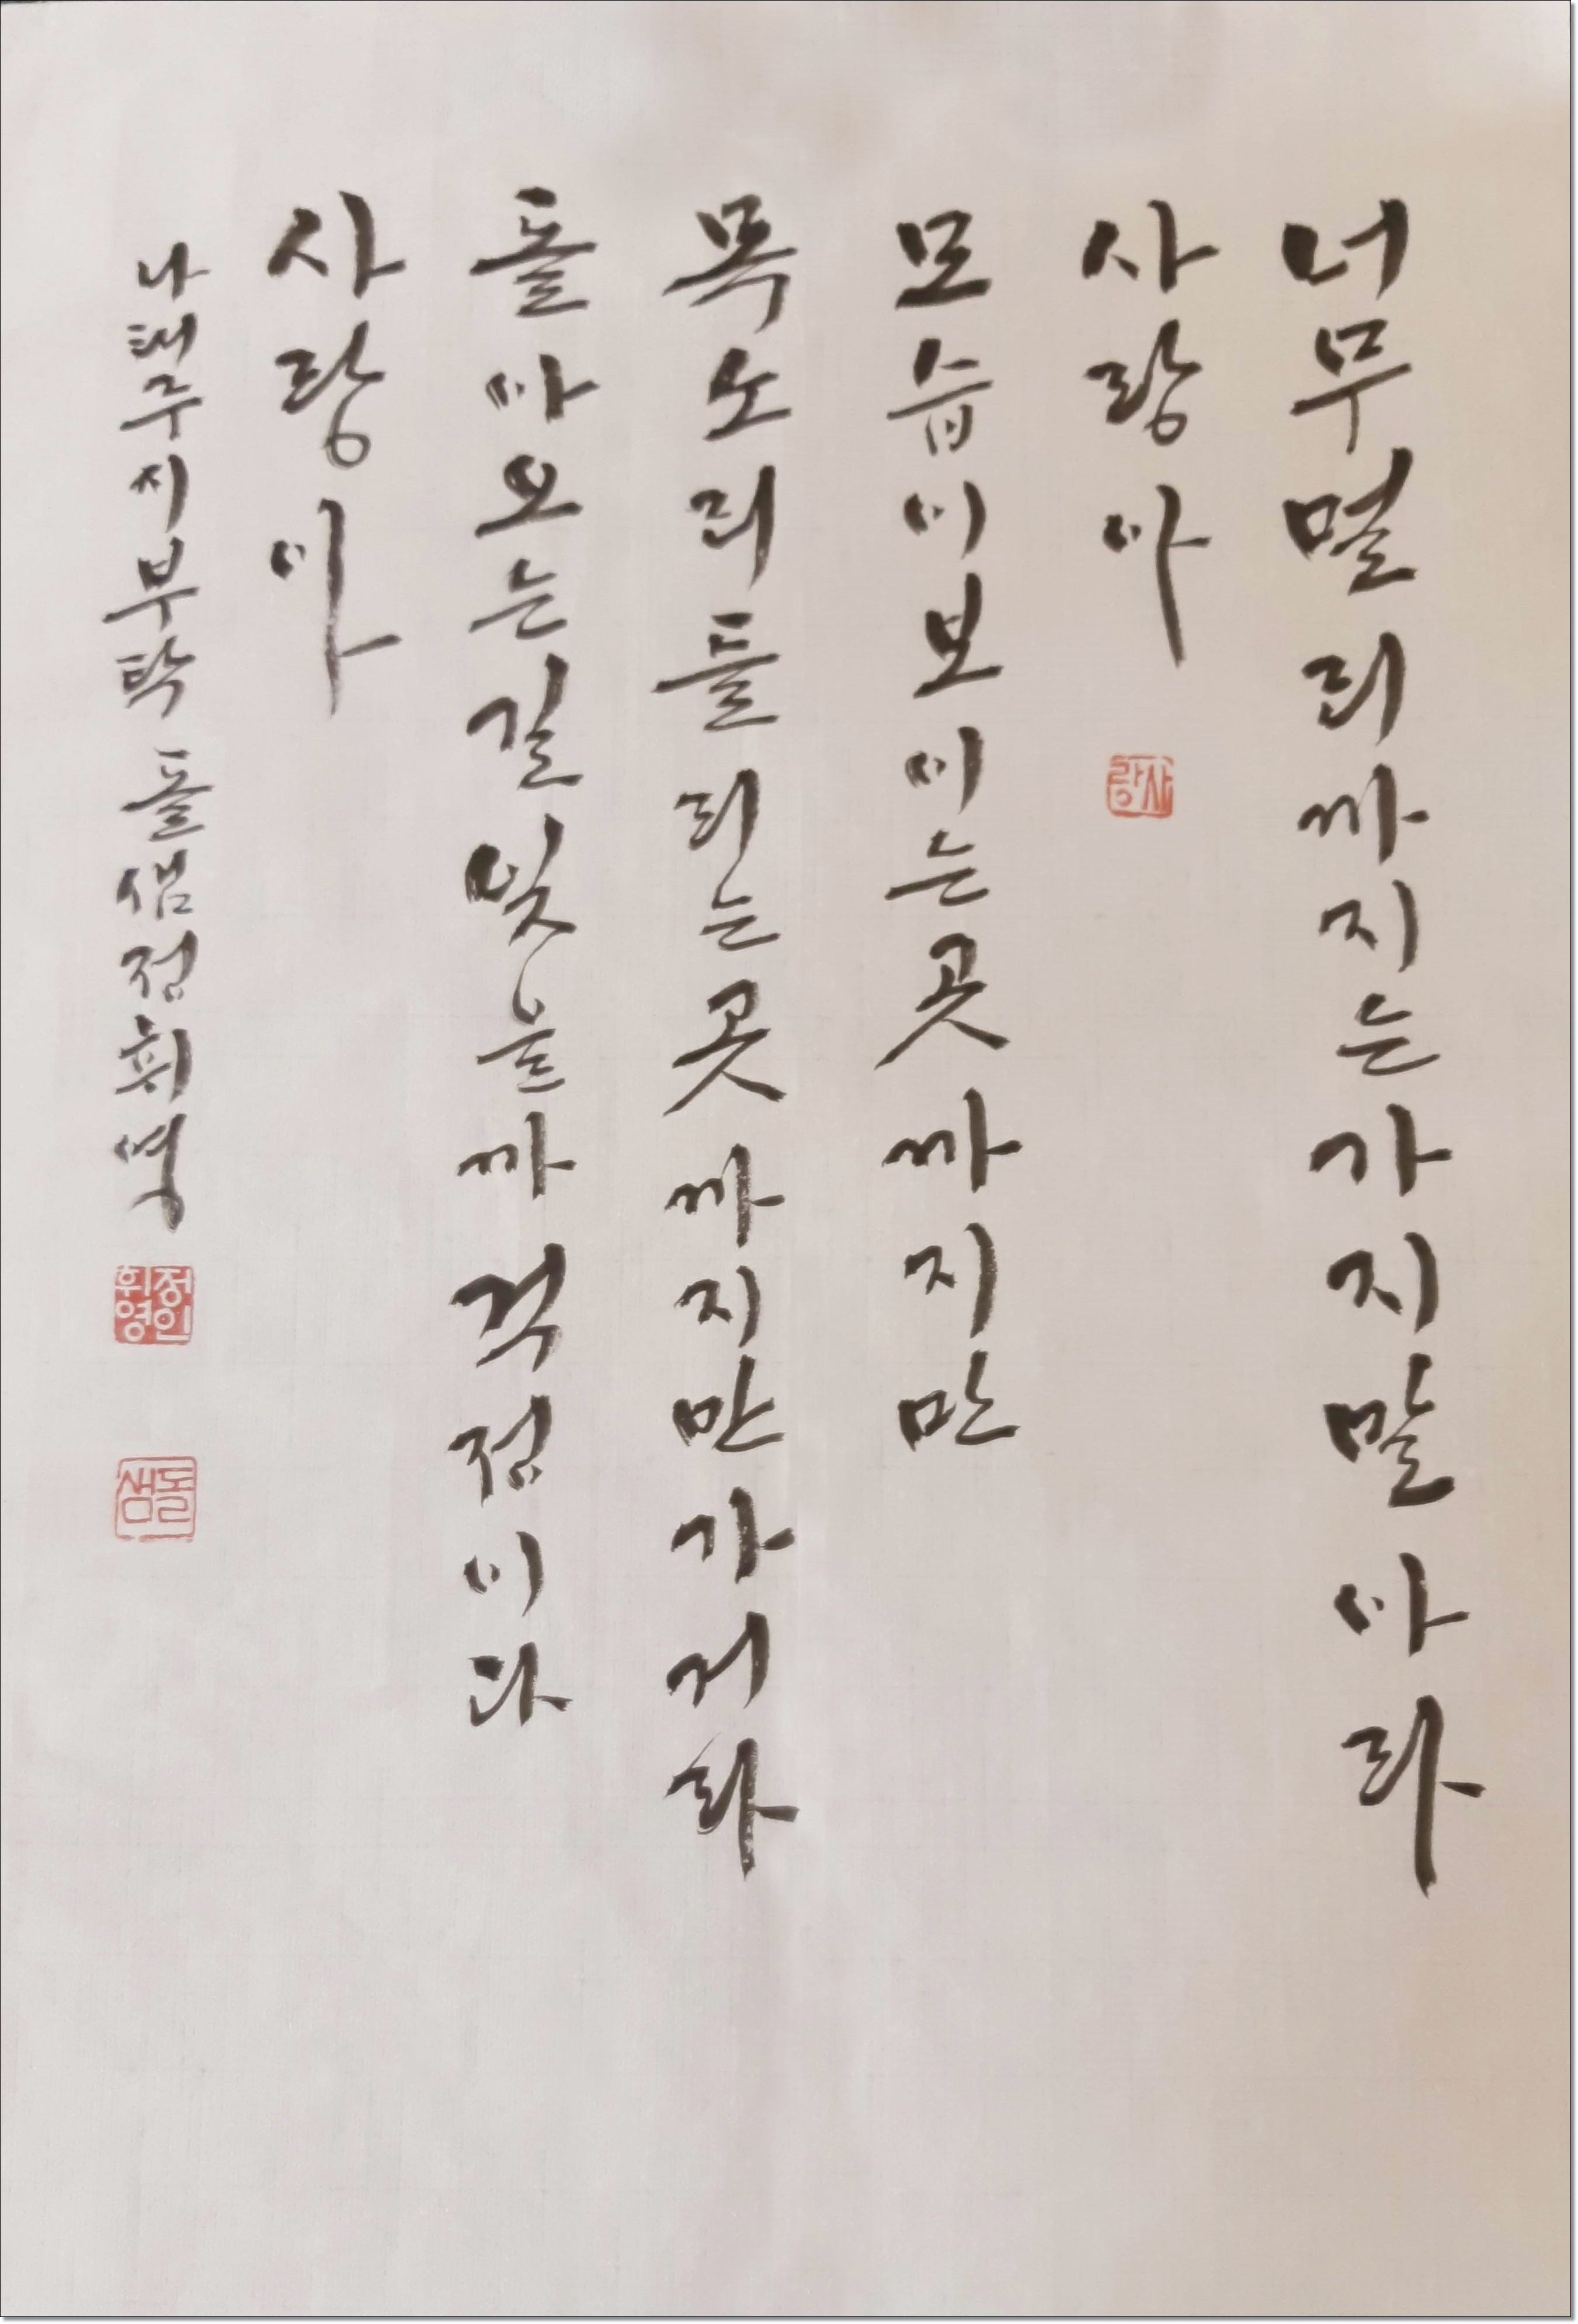 너무멀리까지는가지말아라
사랑아
사랑
모습이보이는곳까지만
목소리들리는곳까지만가거라
돌아오는길잊을까걱정이다
사랑아
나태주시부탁 돌샘정휘영
정인휘영
돌샘